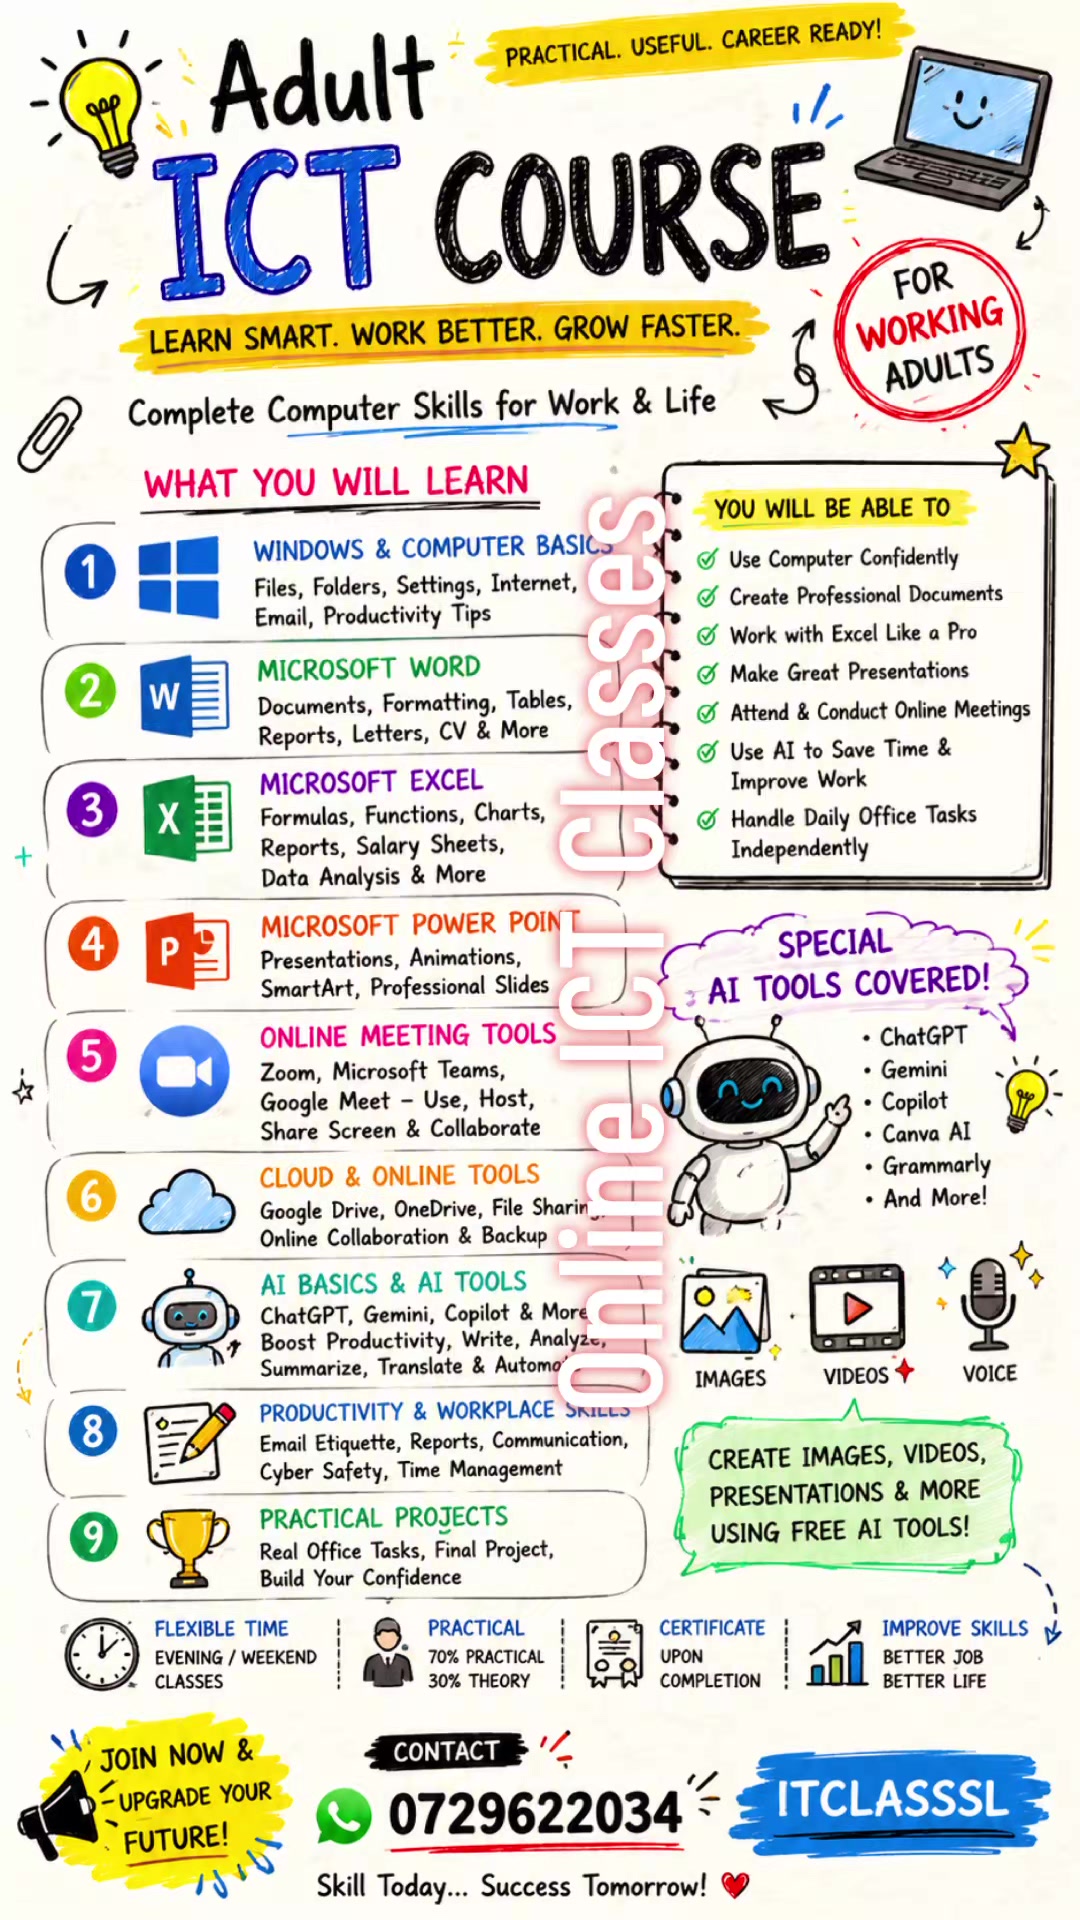 PRACTICAL. USEFUL. CAREER READY!
Adult
ICT COURSE
FOR
WORKING
ADULTS
LEARN SMART. WORK BETTER. GROW FASTER.
Complete Computer Skills for Work & Life
WHAT YOU WILL LEARN
1
WINDOWS & COMPUTER BASICS
Files, Folders, Settings, Internet,
Email, Productivity Tips
2
W
MICROSOFT WORD
Documents, Formatting, Tables,
Reports, Letters, CV & More
3
X
MICROSOFT EXCEL
Formulas, Functions, Charts,
Reports, Salary Sheets,
Data Analysis & More
4
P
MICROSOFT POWER POINT
Presentations, Animations,
SmartArt, Professional Slides
5
ONLINE MEETING TOOLS
Zoom, Microsoft Teams,
Google Meet – Use, Host,
Share Screen & Collaborate
6
CLOUD & ONLINE TOOLS
Google Drive, OneDrive, File Sharing,
Online Collaboration & Backup
7
AI BASICS & AI TOOLS
ChatGPT, Gemini, Copilot & More
Boost Productivity, Write, Analyze,
Summarize, Translate &
8
PRODUCTIVITY & WORKPLACE SKILLS
Email Etiquette, Reports, Communication,
Cyber Safety, Time Management
9
PRACTICAL PROJECTS
Real Office Tasks, Final Project,
Build Your Confidence
Online ICT Classes
YOU WILL BE ABLE TO
Use Computer Confidently
Create Professional Documents
Work with Excel Like a Pro
Make Great Presentations
Attend & Conduct Online Meetings
Use AI to Save Time &
Improve Work
Handle Daily Office Tasks
Independently
SPECIAL
AI TOOLS COVERED!
• ChatGPT
• Gemini
• Copilot
• Canva AI
• Grammarly
• And More!
IMAGES
VIDEOS
VOICE
CREATE IMAGES, VIDEOS,
PRESENTATIONS & MORE
USING FREE AI TOOLS!
FLEXIBLE TIME
EVENING / WEEKEND
CLASSES
PRACTICAL
70% PRACTICAL
30% THEORY
CERTIFICATE
UPON
COMPLETION
IMPROVE SKILLS
BETTER JOB
BETTER LIFE
JOIN NOW &
UPGRADE YOUR
FUTURE!
CONTACT
0729622034
Skill Today... Success Tomorrow!
ITCLASSSL